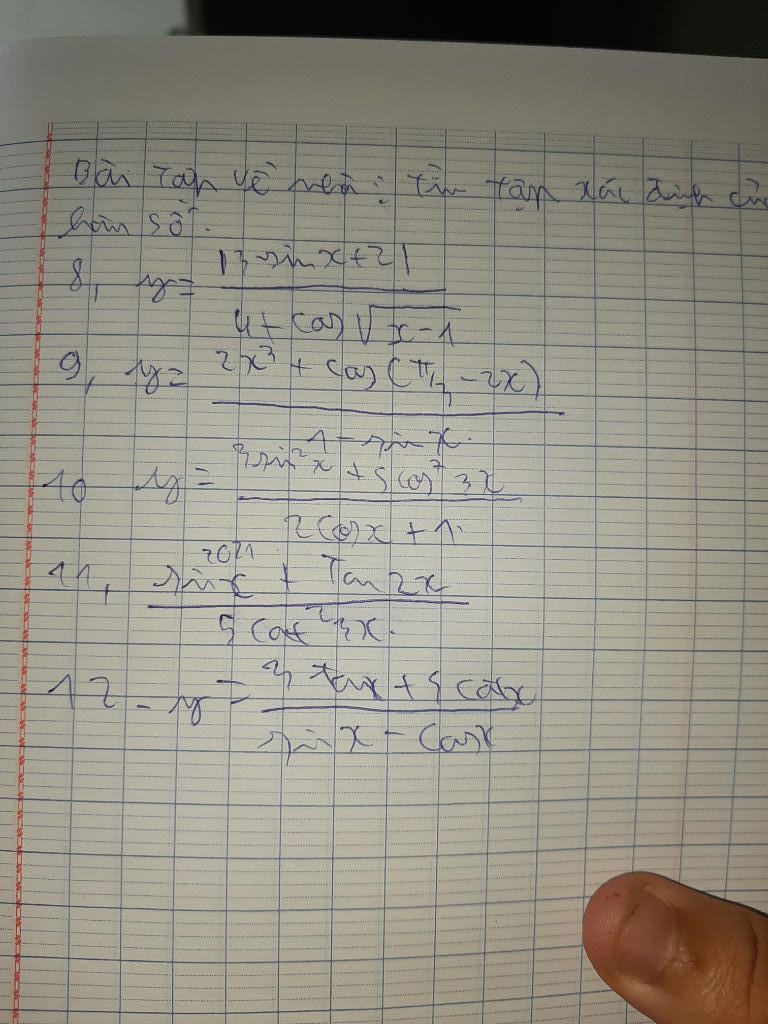 Bài tập về nhà: tìm tập xác định củ
hàm số.
8, y = |3 sin x + 2| / (4 + cos √(x-1))
9, y = (2x³ + cos(π/3 - 2x)) / (1 - sin x.)
10 y = (3 sin² x + 5 cos⁷ 3x) / (2 cos x + 1.)
11, (sin²⁰²¹ x + Tan 2x) / (5 cot² 3x.)
12 - y = (3 tan x + 5 cot x) / (sin x - cos x)